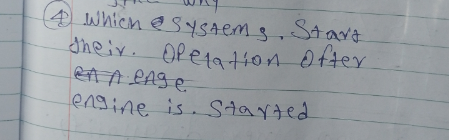 ④ which e systems. Start
their. Operation after
en n enge
engine is. Started